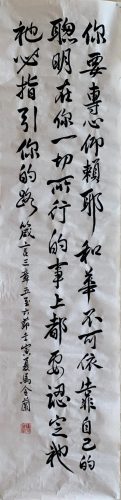 你要專心仰賴耶和華不可依靠自己的
聰明在你一切所行的事上都要認定祂
祂必指引你的路 箴言三章五至六節壬寅夏馬全蘭